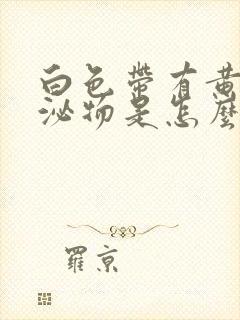 白色帶有黃
泌物是怎麼
羅京